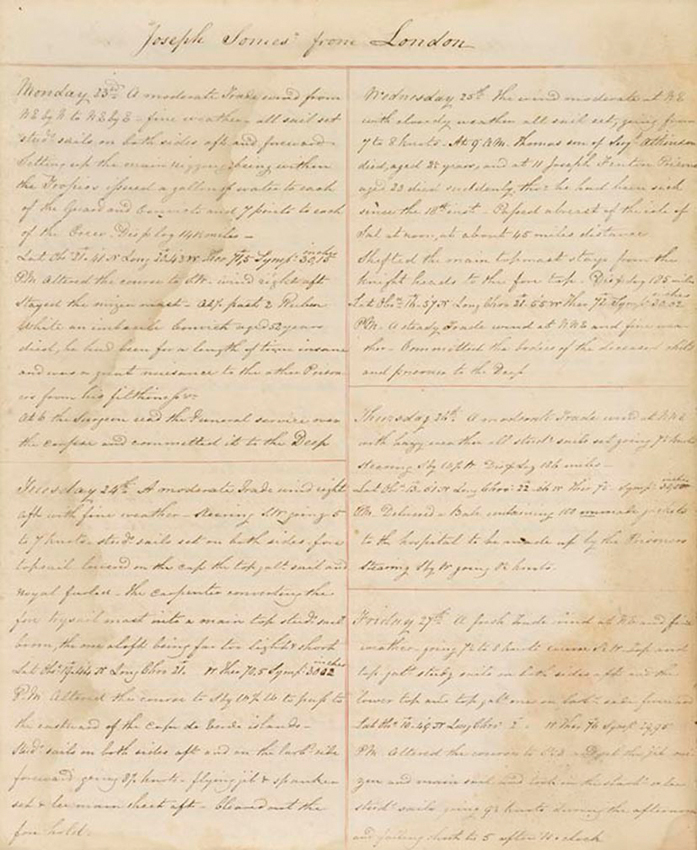 "Joseph Somes" from London
Monday 23rd A moderate Trade wind from
NE by N to NE by E - fine weather, all sail set
stud.l sails on both sides aft and forward
Setting up the main rigging, being within
the Tropics issued a gallon of water to each
of the Guard and Convicts and 7 pints to each
of the Crew. Dis.p log 148 miles -
Lat Obs 21.41 N Long 20.43 W Ther 71.5 Symp.r inches
P.M. Altered the course to SW. wind right aft
Stayed the mizen mast - At ½ past 2 Reuben
White an imbecile Convict aged 52 years
died, he had been for a length of time insane
and was a great nuisance to the other Prison
ers from his filthiness &c
At 6 the Surgeon read the Funeral service over
the corpse and committed it to the Deep
Tuesday 24th A moderate Trade wind right
aft with fine weather - steering SW going 5
to 7 knots. stud.l sails set on both sides, fore
topsail lowered on the cap the top gall.t sail and
royal furled - The carpenter converting the
fore trysail mast into a main top stud.l sail
boom, the one aloft being far too light & short
Lat Obs 19.44 N Long Chro.r 21. W Ther 70.5 Symp.r inches 30.02
P.M. Altered the course to S by W ½ W to pass to
the eastward of the Cape de Verde islands -
Stud.l sails on both sides aft and on the larb.d side
forward going 8½ knots - flying jib & spanker
set & lee main sheet aft - Cleaned out the
fore hold.
Wednesday 25th The wind moderate at NE
with cloudy weather all sail set, going from
7 to 8 knots. At 9 A.M. Thomas son of Serj.t Atkinson
died, aged 2½ years, and at 11 Joseph Fenton Prisoner
aged 22 died suddenly, tho' he had been sick
since the 18th inst - Passed abreast of the isle of
Sal at noon, at about 45 miles distance
Shifted the main topmast stays from the
knight heads to the fore top - Dis.p log 185 miles
Lat Obs 16.57 N Long Chro.r 21.55 W Ther 72 Symp.r inches 30.02
P.M. A steady Trade wind at NNE and fine wea
ther - Committed the bodies of the deceased child
and prisoner to the Deep
Thursday 26th A moderate Trade wind at NNE
with hazy weather all stud.l sails set going 7½ knots
steering S by W ½ W Dis.p Log 186 miles -
Lat Obs 13.51 N Long Chro.r 22.26 W Ther 72 - Symp.r inches
P.M. Delivered a Bale containing 100 jackets
to the hospital to be made up by the Prisoners
Steering S by W going 8½ knots.
Friday 27th A fresh Trade wind at NE and fine
weather going 7½ to 8 knots course S by W - Top and
top gall.t study sails on both sides aft and the
lower top and top gall.t ones on larb.d side forward
Lat Obs 10.49 N Long Chro.r W Ther 76 Symp.r 29.95
P.M. Altered the course to furl the jib miz
zen and main sail and took in the starb.d side
stud.l sails going 9½ knots during the afternoon
and falling short to 5 after 4 o'clock